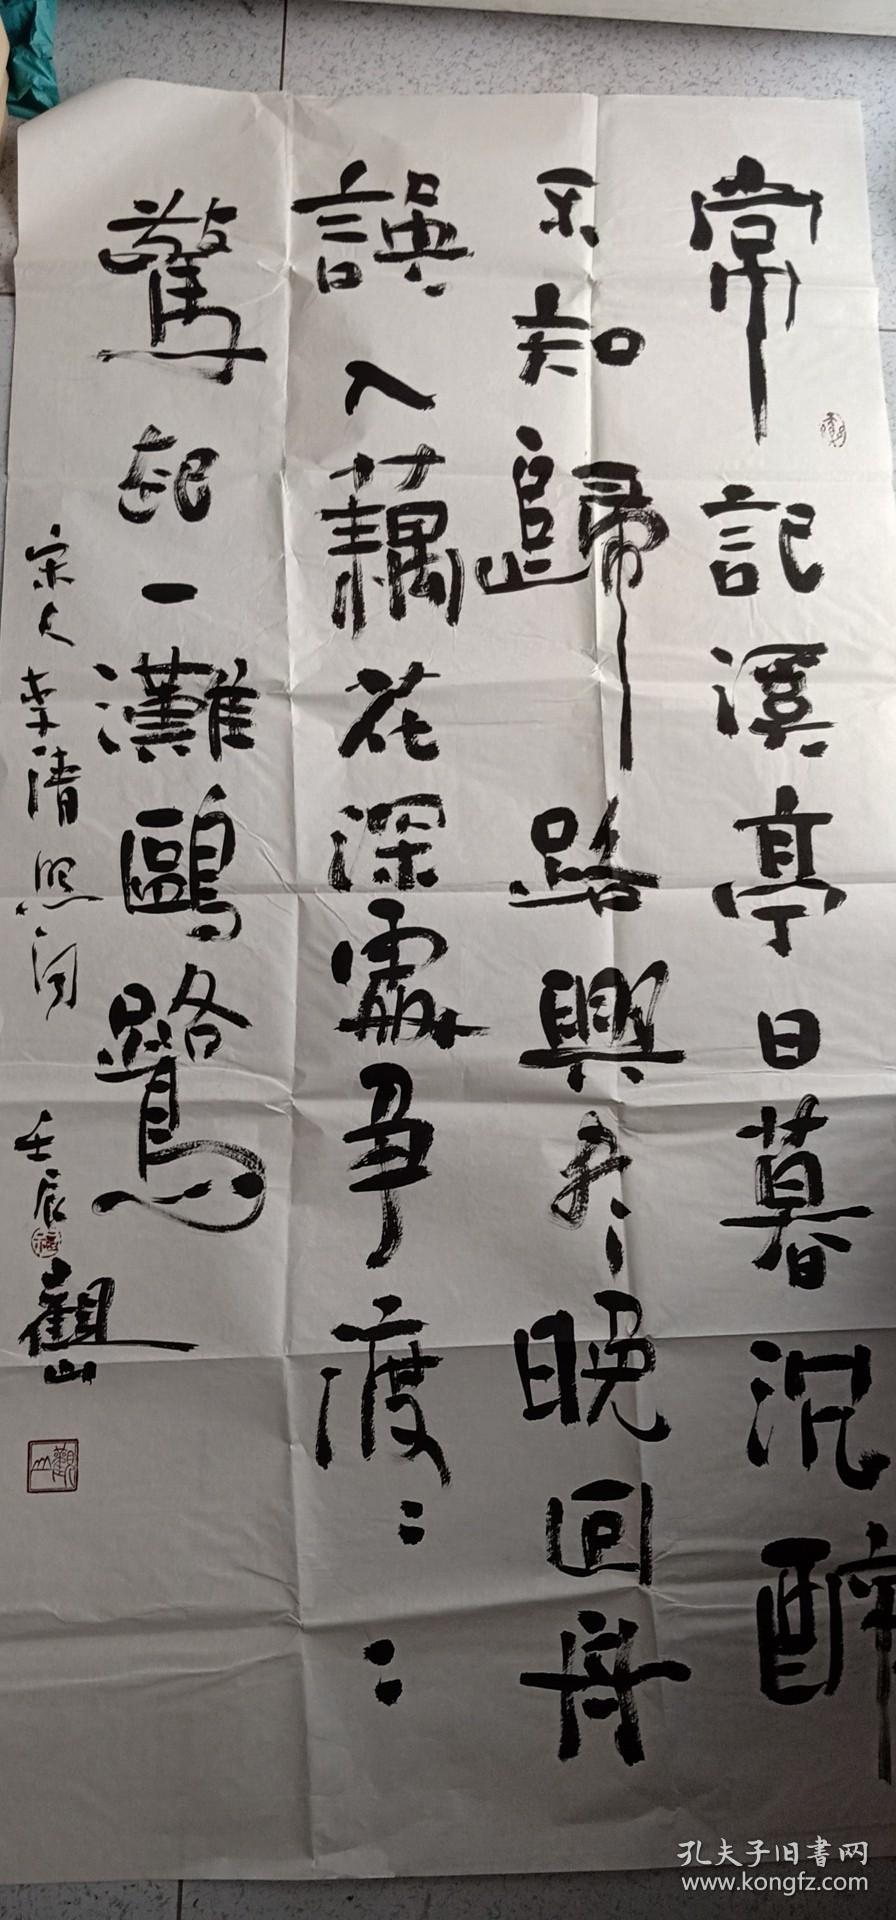 常記溪亭日暮沉醉
不知歸路興尽晚回舟
誤入藕花深處爭渡⺀⺀
驚起一灘鷗鷺
宋人李清照詞
壬辰 觀山
觀山
孔夫子旧書网
www.kongfz.com